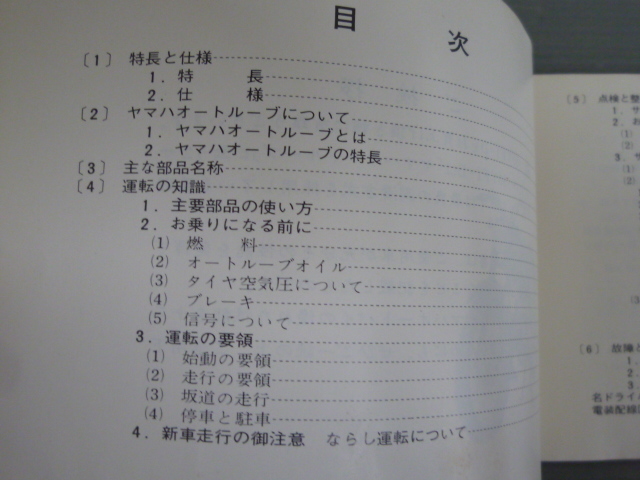 目 次
〔1〕 特長と仕様
1. 特 長
2. 仕 様
〔2〕 ヤマハオートルーブについて
1. ヤマハオートルーブとは
2. ヤマハオートルーブの特長
〔3〕 主な部品名称
〔4〕 運転の知識
1. 主要部品の使い方
2. お乗りになる前に
(1) 燃 料
(2) オートルーブオイル
(3) タイヤ空気圧について
(4) ブレーキ
(5) 信号について
3. 運転の要領
(1) 始動の要領
(2) 走行の要領
(3) 坂道の走行
(4) 停車と駐車
4. 新車走行の御注意 ならし運転について
〔5〕 点検と整
1. サ
2. お
(1)
(2)
3. サ
(1)
(2)
(3)
〔6〕 故障と
1.
2.
3.
名ドライ
電装配線